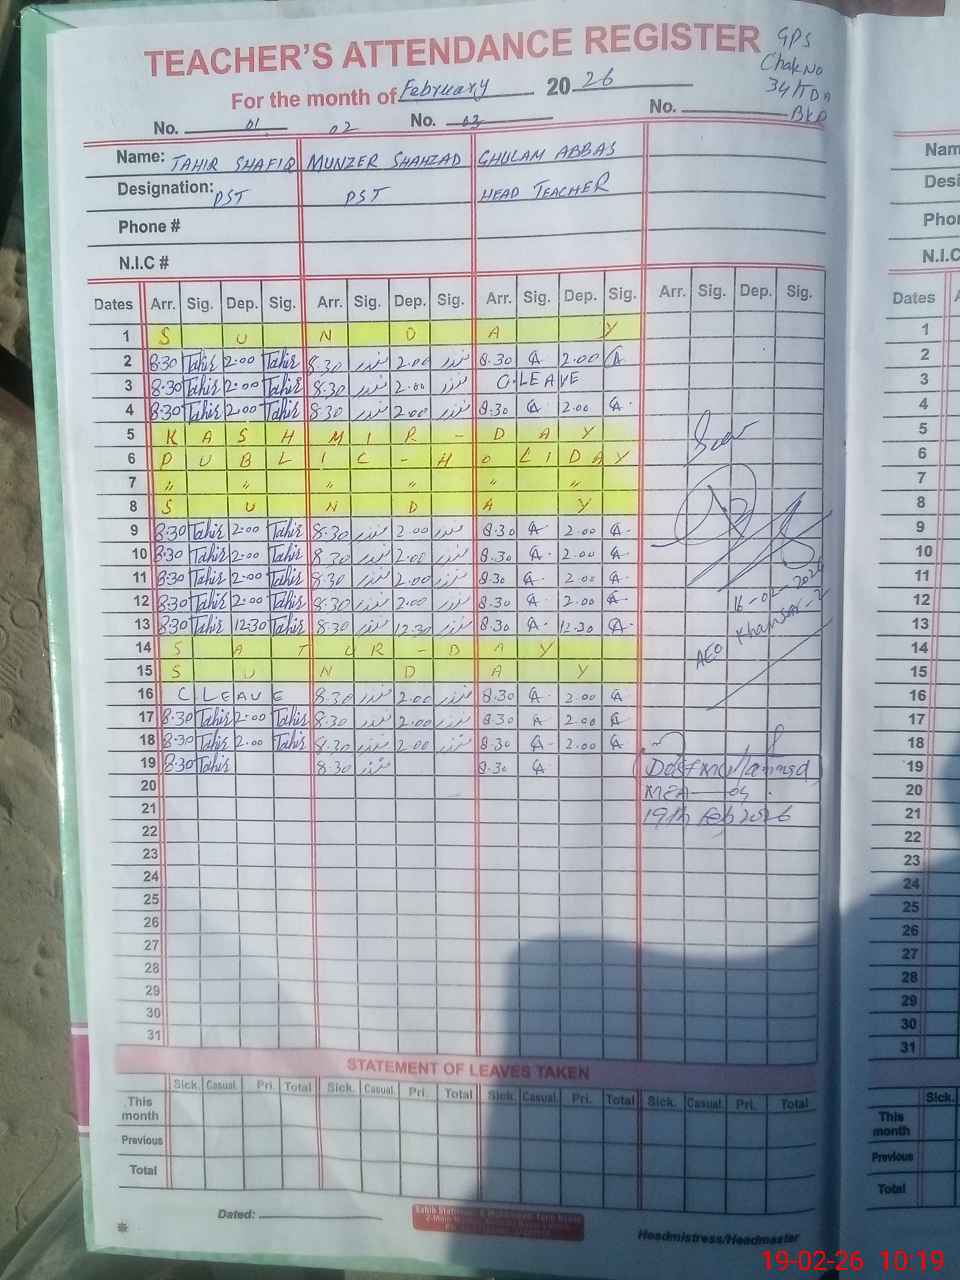 TEACHER'S ATTENDANCE REGISTER
GPS
Chak No
34
For the month of February 2026
No. 01 02 No. 03 No.
Name: TAHIR SHAFIQ MUNZER SHAHZAD GHULAM ABBAS
Designation: PST PST HEAD TEACHER
Phone #
N.I.C #
Dates Arr. Sig. Dep. Sig. Arr. Sig. Dep. Sig. Arr. Sig. Dep. Sig. Arr. Sig. Dep. Sig.
1 S U N D A Y
2 8:30 Tahir 2:00 Tahir 8.30 2.00 8.30 GA 2.00 GA
3 8:30 Tahir 2:00 Tahir 8.30 2.00 C.LEAVE
4 8:30 Tahir 2:00 Tahir 8.30 2.00 8.30 GA 2.00 GA
5 K A S H M I R - D A Y
6 P U B L I C - H O L I D A Y
7 " " " " " "
8 S U N D A Y
9 8:30 Tahir 2:00 Tahir 8.30 2.00 8.30 GA 2.00 GA
10 8:30 Tahir 2:00 Tahir 8.30 2.00 8.30 GA 2.00 GA
11 8:30 Tahir 2:00 Tahir 8.30 2.00 8.30 GA 2.00 GA
12 8:30 Tahir 2:00 Tahir 8.30 2.00 8.30 GA 2.00 GA
16-02-2026
13 8:30 Tahir 12:30 Tahir 8.30 12.30 8.30 GA 12.30 GA
14 S A T U R - D A Y
AEO
15 S U N D A Y
16 C LEAVE 8.30 2.00 8.30 GA 2.00 GA
17 8:30 Tahir 2:00 Tahir 8.30 2.00 8.30 GA 2.00 GA
18 8:30 Tahir 2:00 Tahir 8.30 2.00 8.30 GA 2.00 GA
19 8:30 Tahir 8.30 8.30 GA Dost Muhammad
20 MEA-04
21 19th Feb 2026
22
23
24
25
26
27
28
29
30
31
STATEMENT OF LEAVES TAKEN
Sick. Casual. Pri. Total Sick. Casual. Pri. Total Sick. Casual. Pri. Total Sick. Casual. Pri. Total
This month
Previous
Total
Dated:
Headmistress/Headmaster
Dates
1
2
3
4
5
6
7
8
9
10
11
12
13
14
15
16
17
18
19
20
21
22
23
24
25
26
27
28
29
30
31
Sick.
This month
Previous
Total
19-02-26 10:19